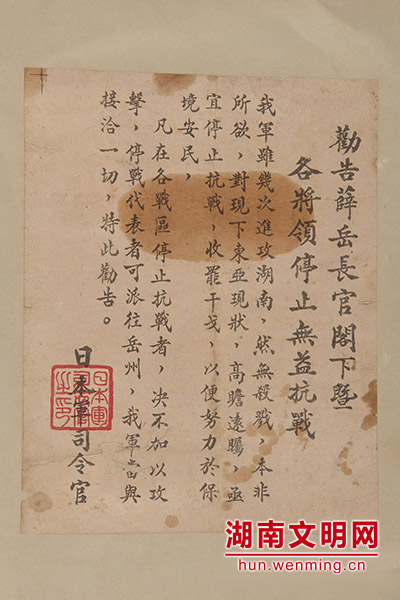 勸告薛岳長官閣下暨
各將領停止無益抗戰
我軍雖幾次進攻湖南，然無殺戮，本非
所欲，對現下東亞現狀，高瞻遠矚，亟
宜停止抗戰，收罷干戈，以便努力於保
境安民，
凡在各戰區停止抗戰者，決不加以攻
擊，停戰代表者可派往岳州，我軍當與
接洽一切，特此勸告。
日本軍司令官
日本軍
之印
湖南文明网
hun.wenming.cn